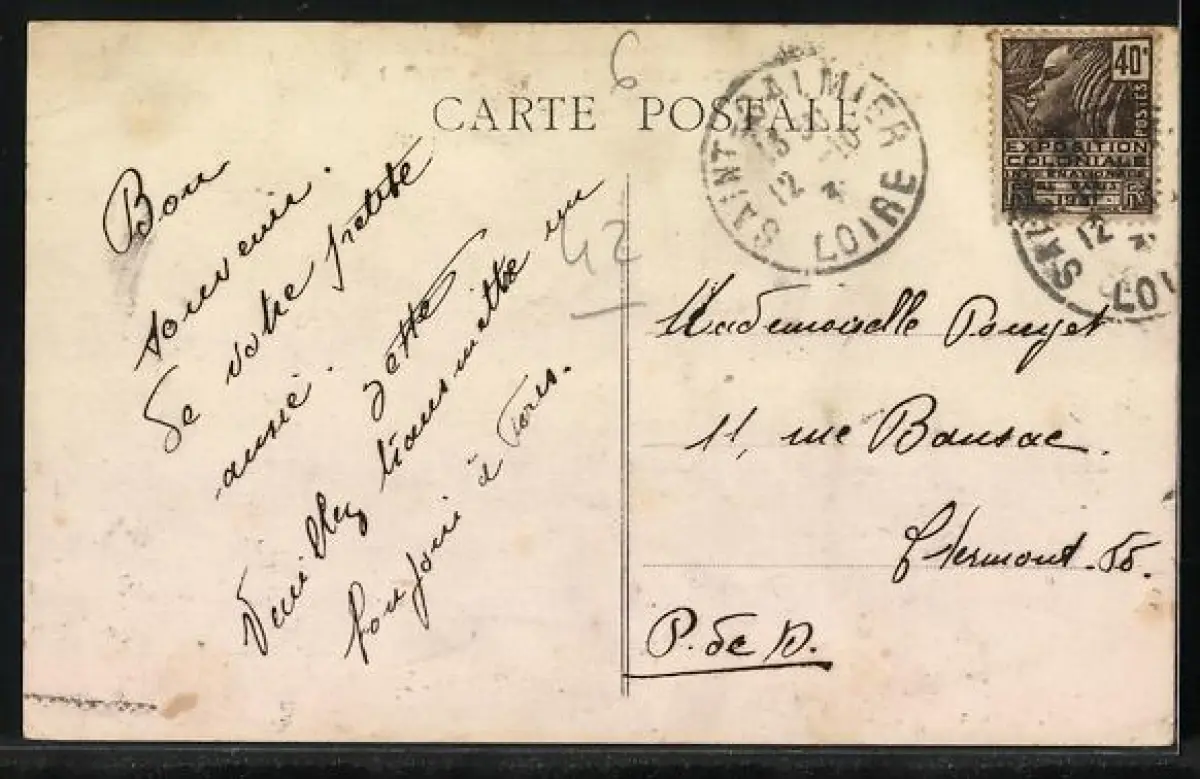 CARTE POSTALE
6
42
Bon
souvenir.
de votre petite
amie.
Zette
Veuillez transmettre un
bonjour à Tous.
SAINT-GALMIER
13 30
12 -10
31
LOIRE
40c
POSTES
EXPOSITION
COLONIALE
INTERNATIONALE
PARIS
1931
12
LOI
Mademoiselle Pouyet
11, rue Bansac.
Clermont-Fd.
P. de D.